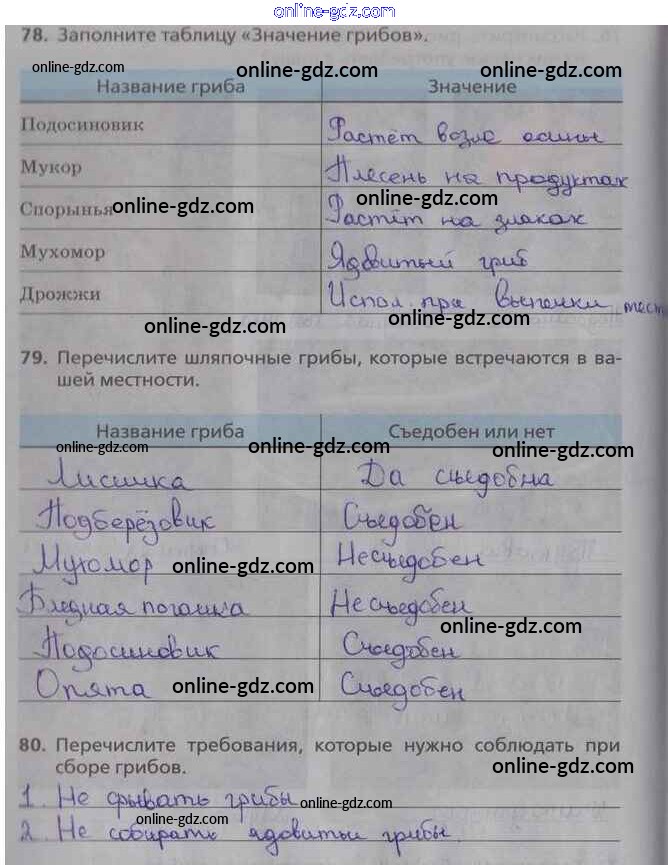 online-gdz.com
78. Заполните таблицу «Значение грибов».
online-gdz.com online-gdz.com online-gdz.com
Название гриба Значение
Подосиновик Растёт возле осины
Мукор Плесень на продуктах
Спорынья online-gdz.com Растёт на злаках online-gdz.com
Мухомор Ядовитый гриб
Дрожжи Испол. при выпечки тест
online-gdz.com online-gdz.com
79. Перечислите шляпочные грибы, которые встречаются в ва-
шей местности. online-gdz.com
online-gdz.com
Название гриба Съедобен или нет
online-gdz.com online-gdz.com online-gdz.com
Лисичка Да съедобна
Подберёзовик Съедобен
Мухомор online-gdz.com Несъедобен online-gdz.com
Бледная поганка Несъедобен
Подосиновик Съедобен online-gdz.com
Опята online-gdz.com Съедобен
80. Перечислите требования, которые нужно соблюдать при
сборе грибов. online-gdz.com
1. Не срывать грибы online-gdz.com
2. Не собирать ядовитые грибы. online-gdz.com